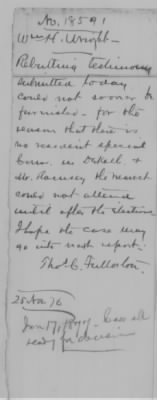 No. 18591
Wm H. Wright
Rebutting Testimony
submitted today
could not sooner be
furnished - for the
reason that there is
no resident special
Comr. in DeKalb &
Mr. Ramsey the nearest
could not attend
until after the election
I hope the case may
go into next report.
Thos. C. Fullerton.
25 Nov 76
Jan 17, 1877. Case all
ready for decision